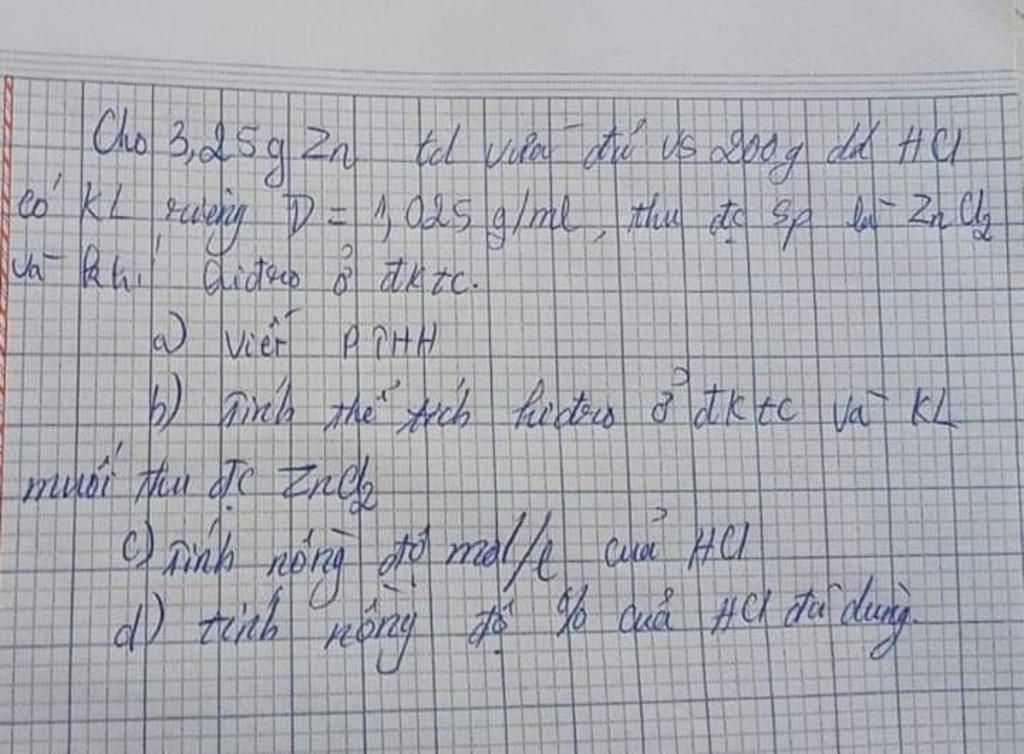 Cho 3,25g Zn td vừa đủ vs 200g dd HCl
có KL riêng D = 1,025 g/ml, thu đc sp là ZnCl2
và khí hidro ở đktc.
a) Viết PTHH
b) Tính thể tích hidro ở đktc và KL
muối thu đc ZnCl2
c) Tính nồng độ mol/l của HCl
d) tính nồng độ % của HCl đã dùng.